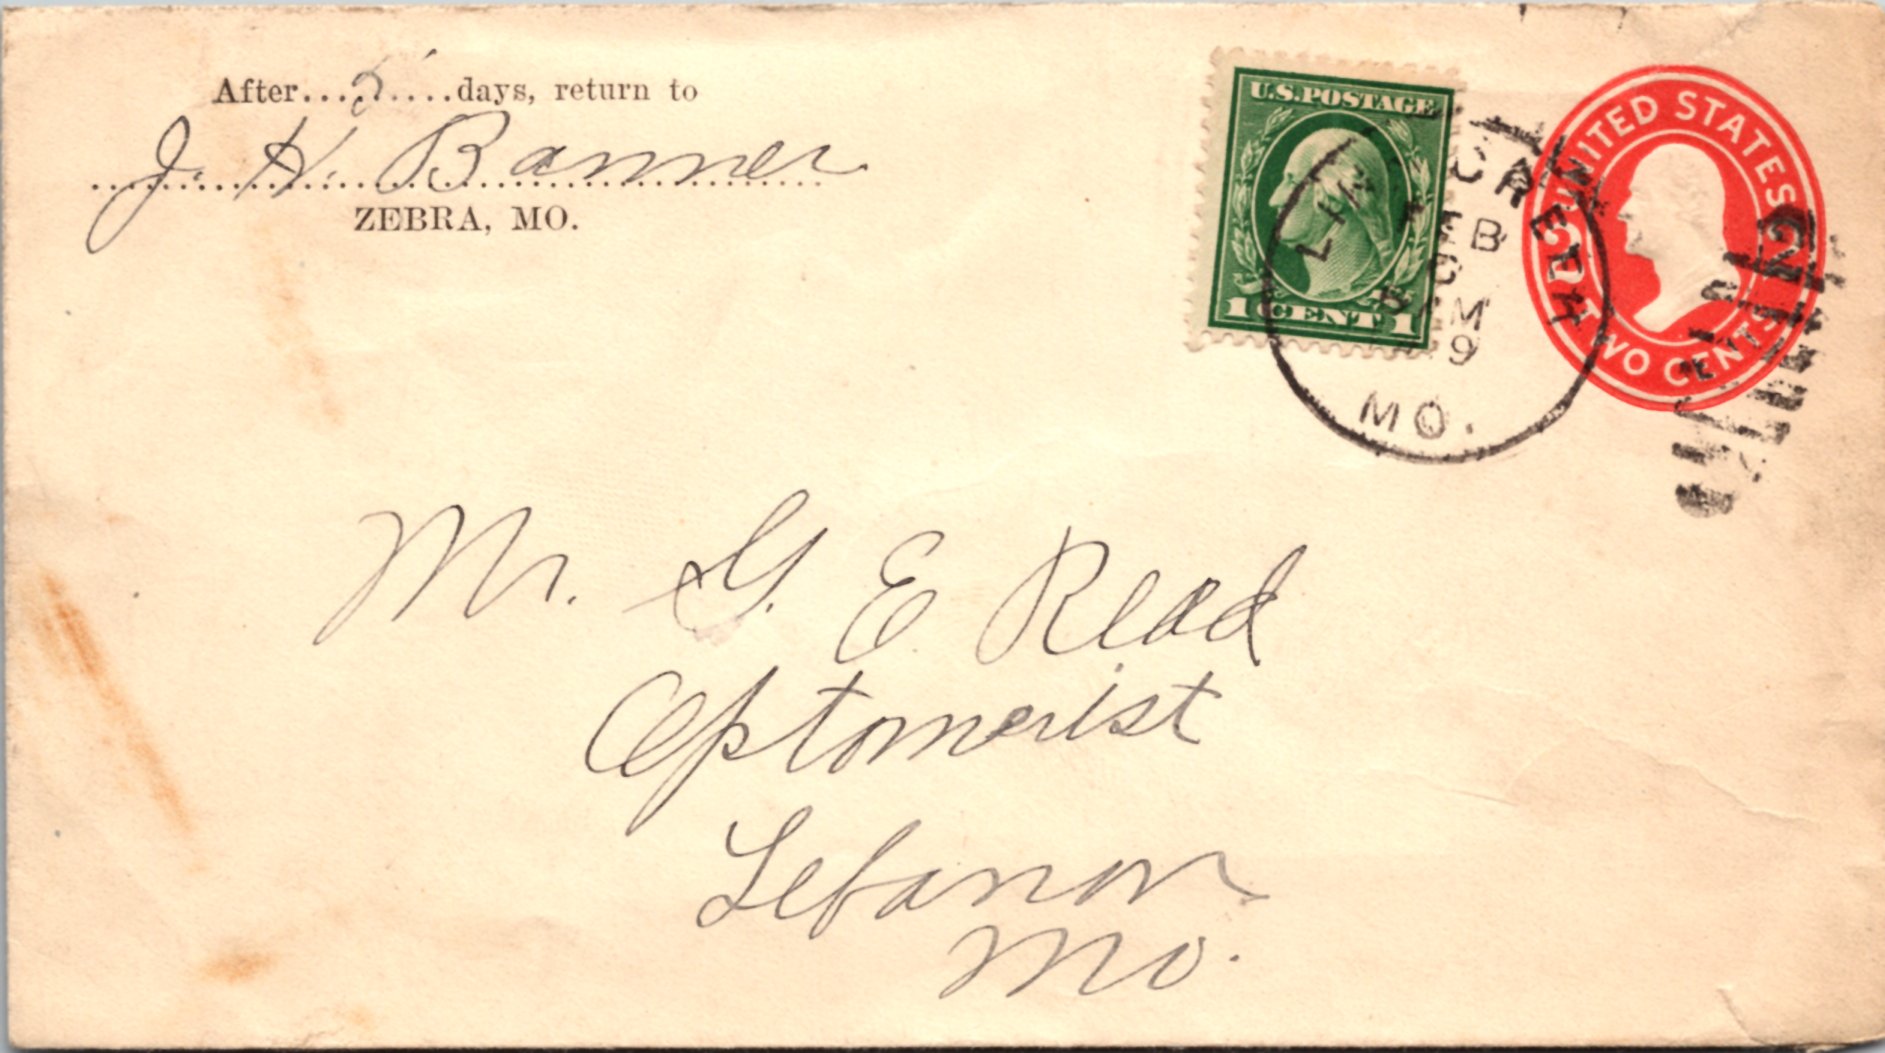 After....5....days, return to
J. H. Banner
ZEBRA, MO.
U.S. POSTAGE
1 CENT 1
UNITED STATES
2 2
TWO CENTS
CREEK
FEB
M
9
MO.
Mr. G. E Read
Optomerist
Lebanon
Mo.